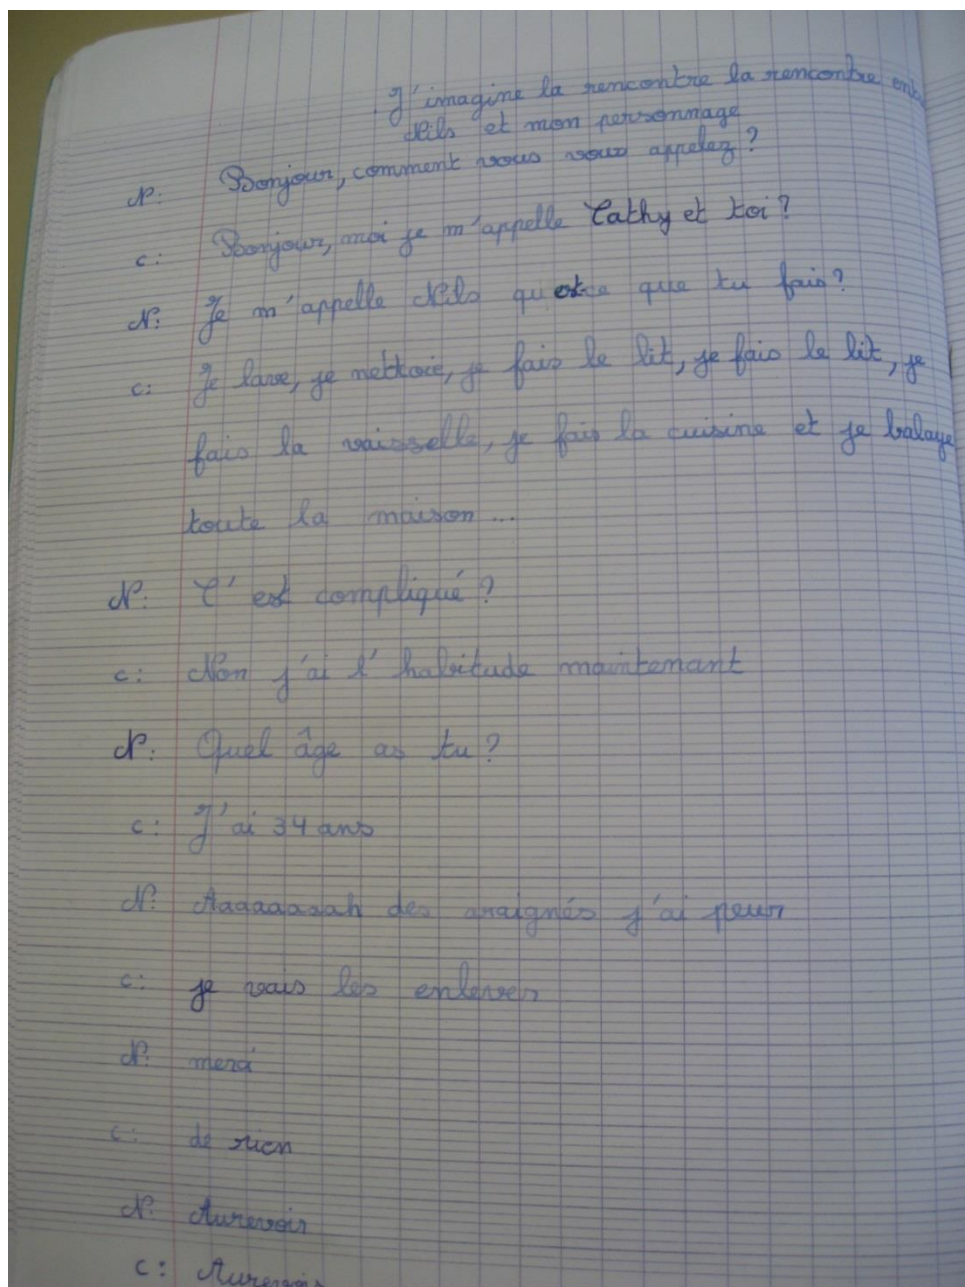 J'imagine la rencontre la rencontre ent
Nils et mon personnage
N: Bonjour, comment vous vous appelez?
C: Bonjour, moi je m'appelle Cathy et toi?
N: Je m'appelle Nils qu'estce que tu fais?
C: Je lave, je nettoie, je fais le lit, je fais le lit, je
fais la vaisselle, je fais la cuisine et je balaye
toute la maison...
N: C'est compliqué?
C: Non j'ai l'habitude maintenant
N: Quel âge as tu?
C: J'ai 34 ans
N: Aaaaaaaah des araignés j'ai peur
C: je vais les enlever
N: merci
C: de rien
N: Aurevoir
C: Aurevoir